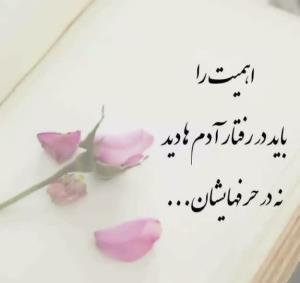 اهمیت را
باید در رفتار آدم ها دید
نه در حرفهایشان...